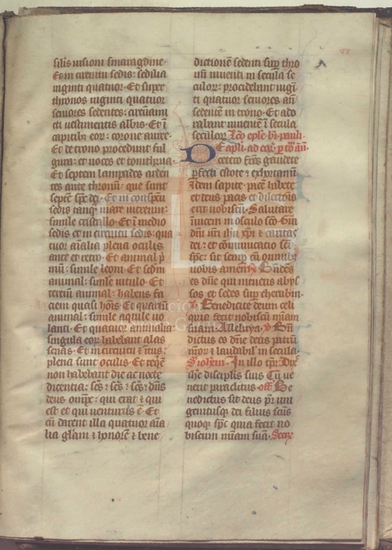 silis visioni smaragdine
Et in circuitu sedis: sedilia
viginti quatuor. Et super
thronos viginti quatuor
seniores sedentes: circumam
icti vestimentis albis. Et ī
capitibus eorum: corone auree
Et de trono procedunt ful
gura: et voces et tonitrua
Et septem lampades arden
tes ante thronū: que sunt
septē sps dei. Et in conspctu
sedis tanquam mare vitreum:
simile cristallo. Et ī medio
sedis et in circuitu sedis: qua
tuor aīalia plena oculis
ante et retro. Et animal p
mū: simile leoni. et scdm
animal: simile vitulo. Et
tercium animal: habens fa
ciem quasi hois. Et quartū
animal: simile aquile vo
lanti. Et quatuor animalia:
singula eorum habebant alas
senas. Et in circuitu et intus:
plena sunt oculis. Et requiē
non habebant die ac nocte
dicentia: scs: scs: scs: dns
deus omps: qui erat et qui
est: et qui venturus ē. Et
cū darent illa quatuor aīa
lia gliam et honorē et bene
dictionē sedenti sup thro
nū viventi in secula se
culorum: procidebant vigī
ti quatuor seniores an̄
sedentē in trono. Et ado
rabant viventē ī secula
seculorum. Lco eple bī pauli
apli. ad cor.
fres gaudete
pfecti estote: exhortami
Idem sapite: pacē habete
et deus pacis et dilectōis
erit vobiscū. Salutate
invicem in osculo scō. Gra
dnī nrī ihu xpi: et carita
dei: et cōmunicatio scī
sps: sit semp cū omnibus
vobis amen. Bndcs
es dne qui intueris abys
sos et sedes sup cherubin.
Benedicite deum celi
quia fecit nobiscū miam
suam. Alleluya. Bn
dictus es dne deus patrū
nrorum: et laudabilis in secula.
In illo tpr. Dix
ihe discipulis suis. Cū ve
nerit paraclitus. off. Be
nedictus sit deus pr: uni
genitusqz dei filius scūs
quoqz sps: quia fecit no
biscum miam suā. Secr